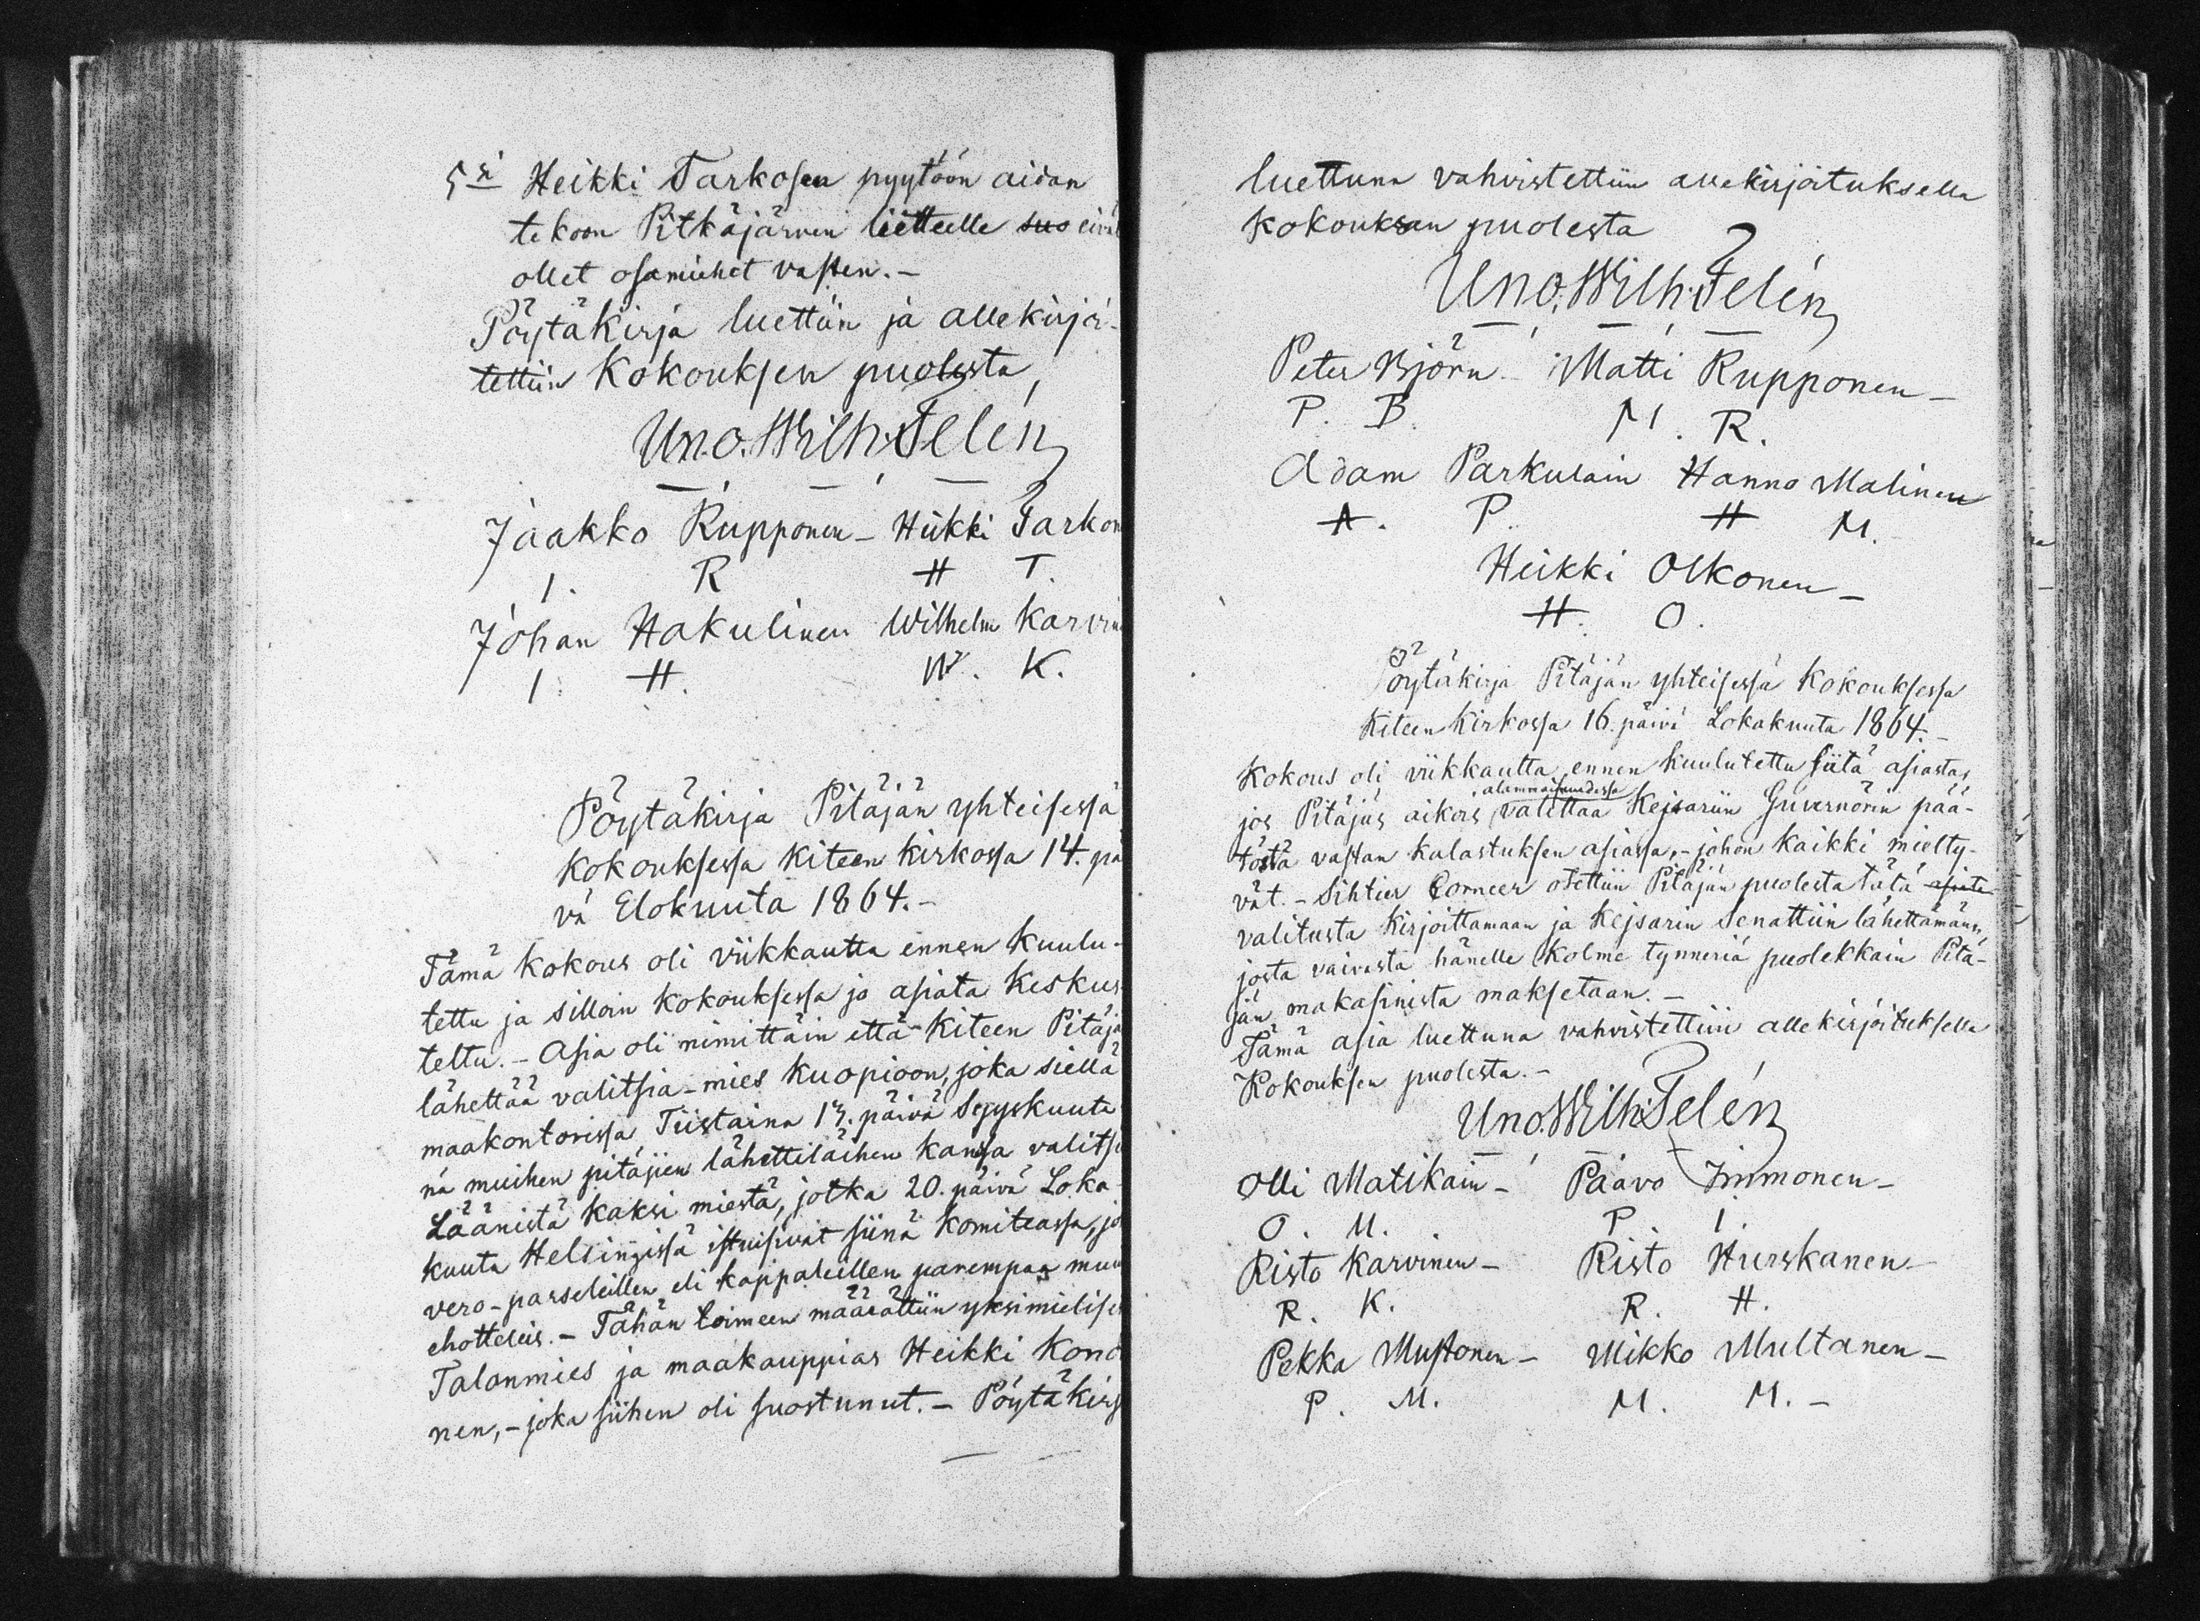 5:si Heikki Tarkosen pyytöön aidan
tekoon Pitkäjärven lietteelle suo eivät
ollet osamiehet vasten.-
Pöytäkirja luettiin ja allekirjoi-
tettiin Kokouksen puolesta,
Uno. Wilh. Telén
Jaakko Rupponen - Heikki Tarkon
I. R H T.
Johan Hakulinen Wilhelm Karvin
I H. W. K.
Pöytäkirja Pitäjän yhteisessä
kokouksessa Kiteen kirkossa 14. päi
vä Elokuuta 1864.-
Tämä kokous oli viikkautta ennen kuulu-
tettu ja silloin kokouksessa jo asiata keskus
teltu. - Asia oli nimittäin että Kiteen Pitäjä
lähettää valitsia-mies Kuopioon, joka siellä
maakontorissa Tiistaina 13. päivä Syyskuuta
nä muihen pitäjien lähettiläihen kanssa valitsi
Läänistä kaksi miestä, jotka 20. päivä Loka
kuuta Helsingissä istuisivat siinä komiteassa, jo
vero-parseleillen eli kappaleillen parempaa muu
ehotteleis. - Tähän toimeen määrättiin yksimielise
Talonmies ja maakauppias Heikki Kono
nen, - joka siihen oli suostunut. - Pöytäkirj
luettuna vahvistettiin allekirjoituksella
kokouksan puolesta
Uno. Wilh. Telén
Peter Björn - Matti Rupponen -
P. B. M. R.
Adam Parkulain Hanno Malinen
A. P. H M.
Heikki Olkonen -
H. O.
Pöytäkirja Pitäjän yhteisessä kokouksessa
Kiteen kirkossa 16. päivä Lokakuuta 1864.-
Kokous oli viikkautta ennen kuulutettu siitä asiasta,
alammaisuudessa
jos Pitäjäs aikois valittaa Kejsariin Guvernörin pää-
töstä vastan kalastuksen asiassa, - johon kaikki mielty-
vät. - Sihtier Corneer otettiin Pitäjän puolesta tätä asiata
valitusta kirjoittamaan ja Kejsarin Senattiin lähettämään,
josta vaivasta hänelle kolme tynneriä puolekkain Pitä-
jän makasinista maksetaan. -
Tämä asia luettuna vahvistettiin allekirjoituksella
Kokouksen puolesta. -
Uno. Wilh. Telén
Olli Matikain - Paavo Immonen -
O. M. P. I.
Risto Karvinen - Risto Hurskanen -
R. K. R. H.
Pekka Mustonen - Mikko Multanen -
P. M. M. M. -